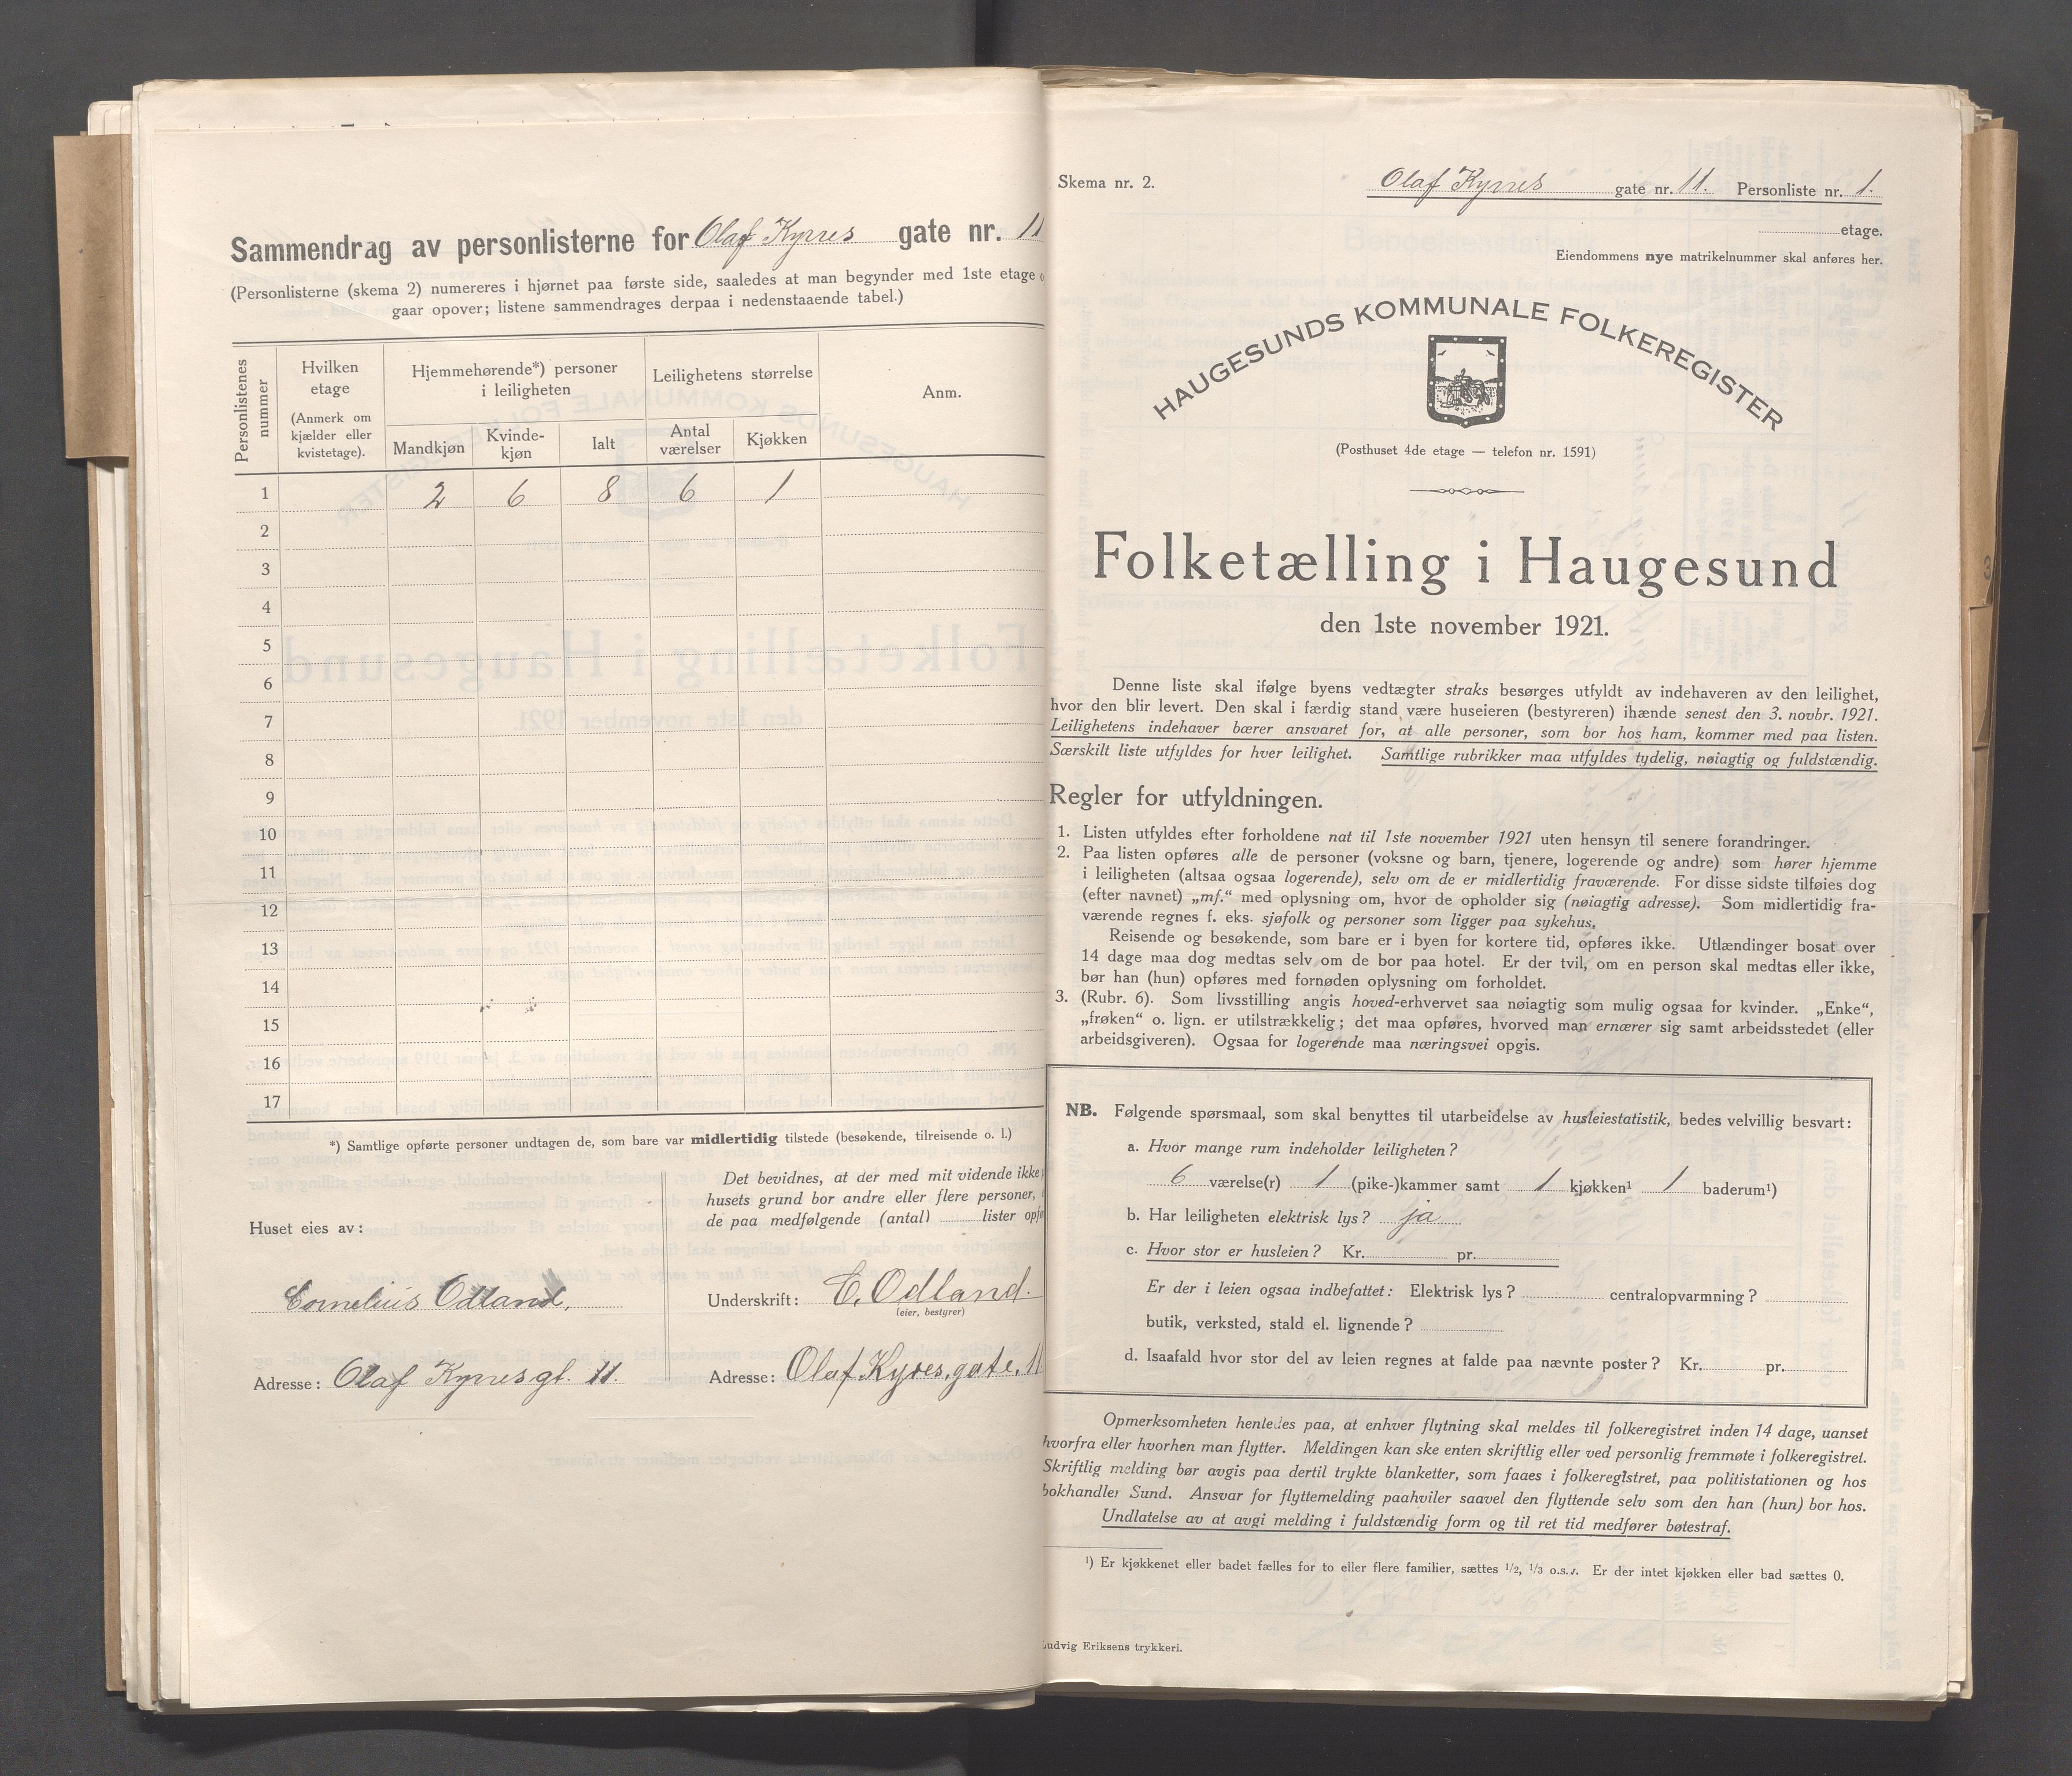 Sammendrag av personlisterne for Olaf Kyrres gate nr. 11
(Personlisterne (skema 2) numereres i hjørnet paa første side, saaledes at man begynder med 1ste etage o
gaar opover; listene sammendrages derpaa i nedenstaaende tabel.)
Personlistenes nummer
Hvilken etage
(Anmerk om kjælder eller kvistetage).
Hjemmehørende*) personer i leiligheten
Leilighetens størrelse
Anm.
Mandkjøn
Kvinde-kjøn
Ialt
Antal værelser
Kjøkken
1 2 6 8 6 1
2
3
4
5
6
7
8
9
10
11
12
13
14
15
16
17
*) Samtlige opførte personer undtagen de, som bare var midlertidig tilstede (besøkende, tilreisende o. l.)
Det bevidnes, at der med mit vidende ikke
husets grund bor andre eller flere personer,
de paa medfølgende (antal) lister opfø
Huset eies av:
Cornelius Odland,
Adresse: Olaf Kyrresgt. 11.
Underskrift: C. Odland.
(eier, bestyrer)
Adresse: Olaf Kyres, gate, 11
Skema nr. 2.
Olaf Kyrres gate nr. 11. Personliste nr. 1.
etage.
Eiendommens nye matrikelnummer skal anføres her.
HAUGESUNDS KOMMUNALE FOLKEREGISTER
(Posthuset 4de etage — telefon nr. 1591)
Folketælling i Haugesund
den 1ste november 1921.
Denne liste skal ifølge byens vedtægter straks besørges utfyldt av indehaveren av den leilighet,
hvor den blir levert. Den skal i færdig stand være huseieren (bestyreren) ihænde senest den 3. novbr. 1921.
Leilighetens indehaver bærer ansvaret for, at alle personer, som bor hos ham, kommer med paa listen.
Særskilt liste utfyldes for hver leilighet. Samtlige rubrikker maa utfyldes tydelig, nøiagtig og fuldstændig.
Regler for utfyldningen.
1. Listen utfyldes efter forholdene nat til 1ste november 1921 uten hensyn til senere forandringer.
2. Paa listen opføres alle de personer (voksne og barn, tjenere, logerende og andre) som hører hjemme
i leiligheten (altsaa ogsaa logerende), selv om de er midlertidig fraværende. For disse sidste tilføies dog
(efter navnet) „mf.“ med oplysning om, hvor de opholder sig (nøiagtig adresse). Som midlertidig fra-
værende regnes f. eks. sjøfolk og personer som ligger paa sykehus.
Reisende og besøkende, som bare er i byen for kortere tid, opføres ikke. Utlændinger bosat over
14 dage maa dog medtas selv om de bor paa hotel. Er der tvil, om en person skal medtas eller ikke,
bør han (hun) opføres med fornøden oplysning om forholdet.
3. (Rubr. 6). Som livsstilling angis hoved-erhvervet saa nøiagtig som mulig ogsaa for kvinder. „Enke“,
„frøken“ o. lign. er utilstrækkelig; det maa opføres, hvorved man ernærer sig samt arbeidsstedet (eller
arbeidsgiveren). Ogsaa for logerende maa næringsvei opgis.
NB. Følgende spørsmaal, som skal benyttes til utarbeidelse av husleiestatistik, bedes velvillig besvart:
a. Hvor mange rum indeholder leiligheten?
6 værelse(r) 1 (pike-)kammer samt 1 kjøkken¹ 1 baderum¹)
b. Har leiligheten elektrisk lys? ja
c. Hvor stor er husleien? Kr. pr.
Er der i leien ogsaa indbefattet: Elektrisk lys? centralopvarmning?
butik, verksted, stald el. lignende?
d. Isaafald hvor stor del av leien regnes at falde paa nævnte poster? Kr. pr.
Opmerksomheten henledes paa, at enhver flytning skal meldes til folkeregistret inden 14 dage, uanset
hvorfra eller hvorhen man flytter. Meldingen kan ske enten skriftlig eller ved personlig fremmøte i folkeregistret.
Skriftlig melding bør avgis paa dertil trykte blanketter, som faaes i folkeregistret, paa politistationen og hos
bokhandler Sund. Ansvar for flyttemelding paahviler saavel den flyttende selv som den han (hun) bor hos.
Undlatelse av at avgi melding i fuldstændig form og til ret tid medfører bøtestraf.
¹) Er kjøkkenet eller badet fælles for to eller flere familier, sættes 1/2, 1/3 o.s.v. Er der intet kjøkken eller bad sættes 0.
Ludvig Eriksens trykkeri.